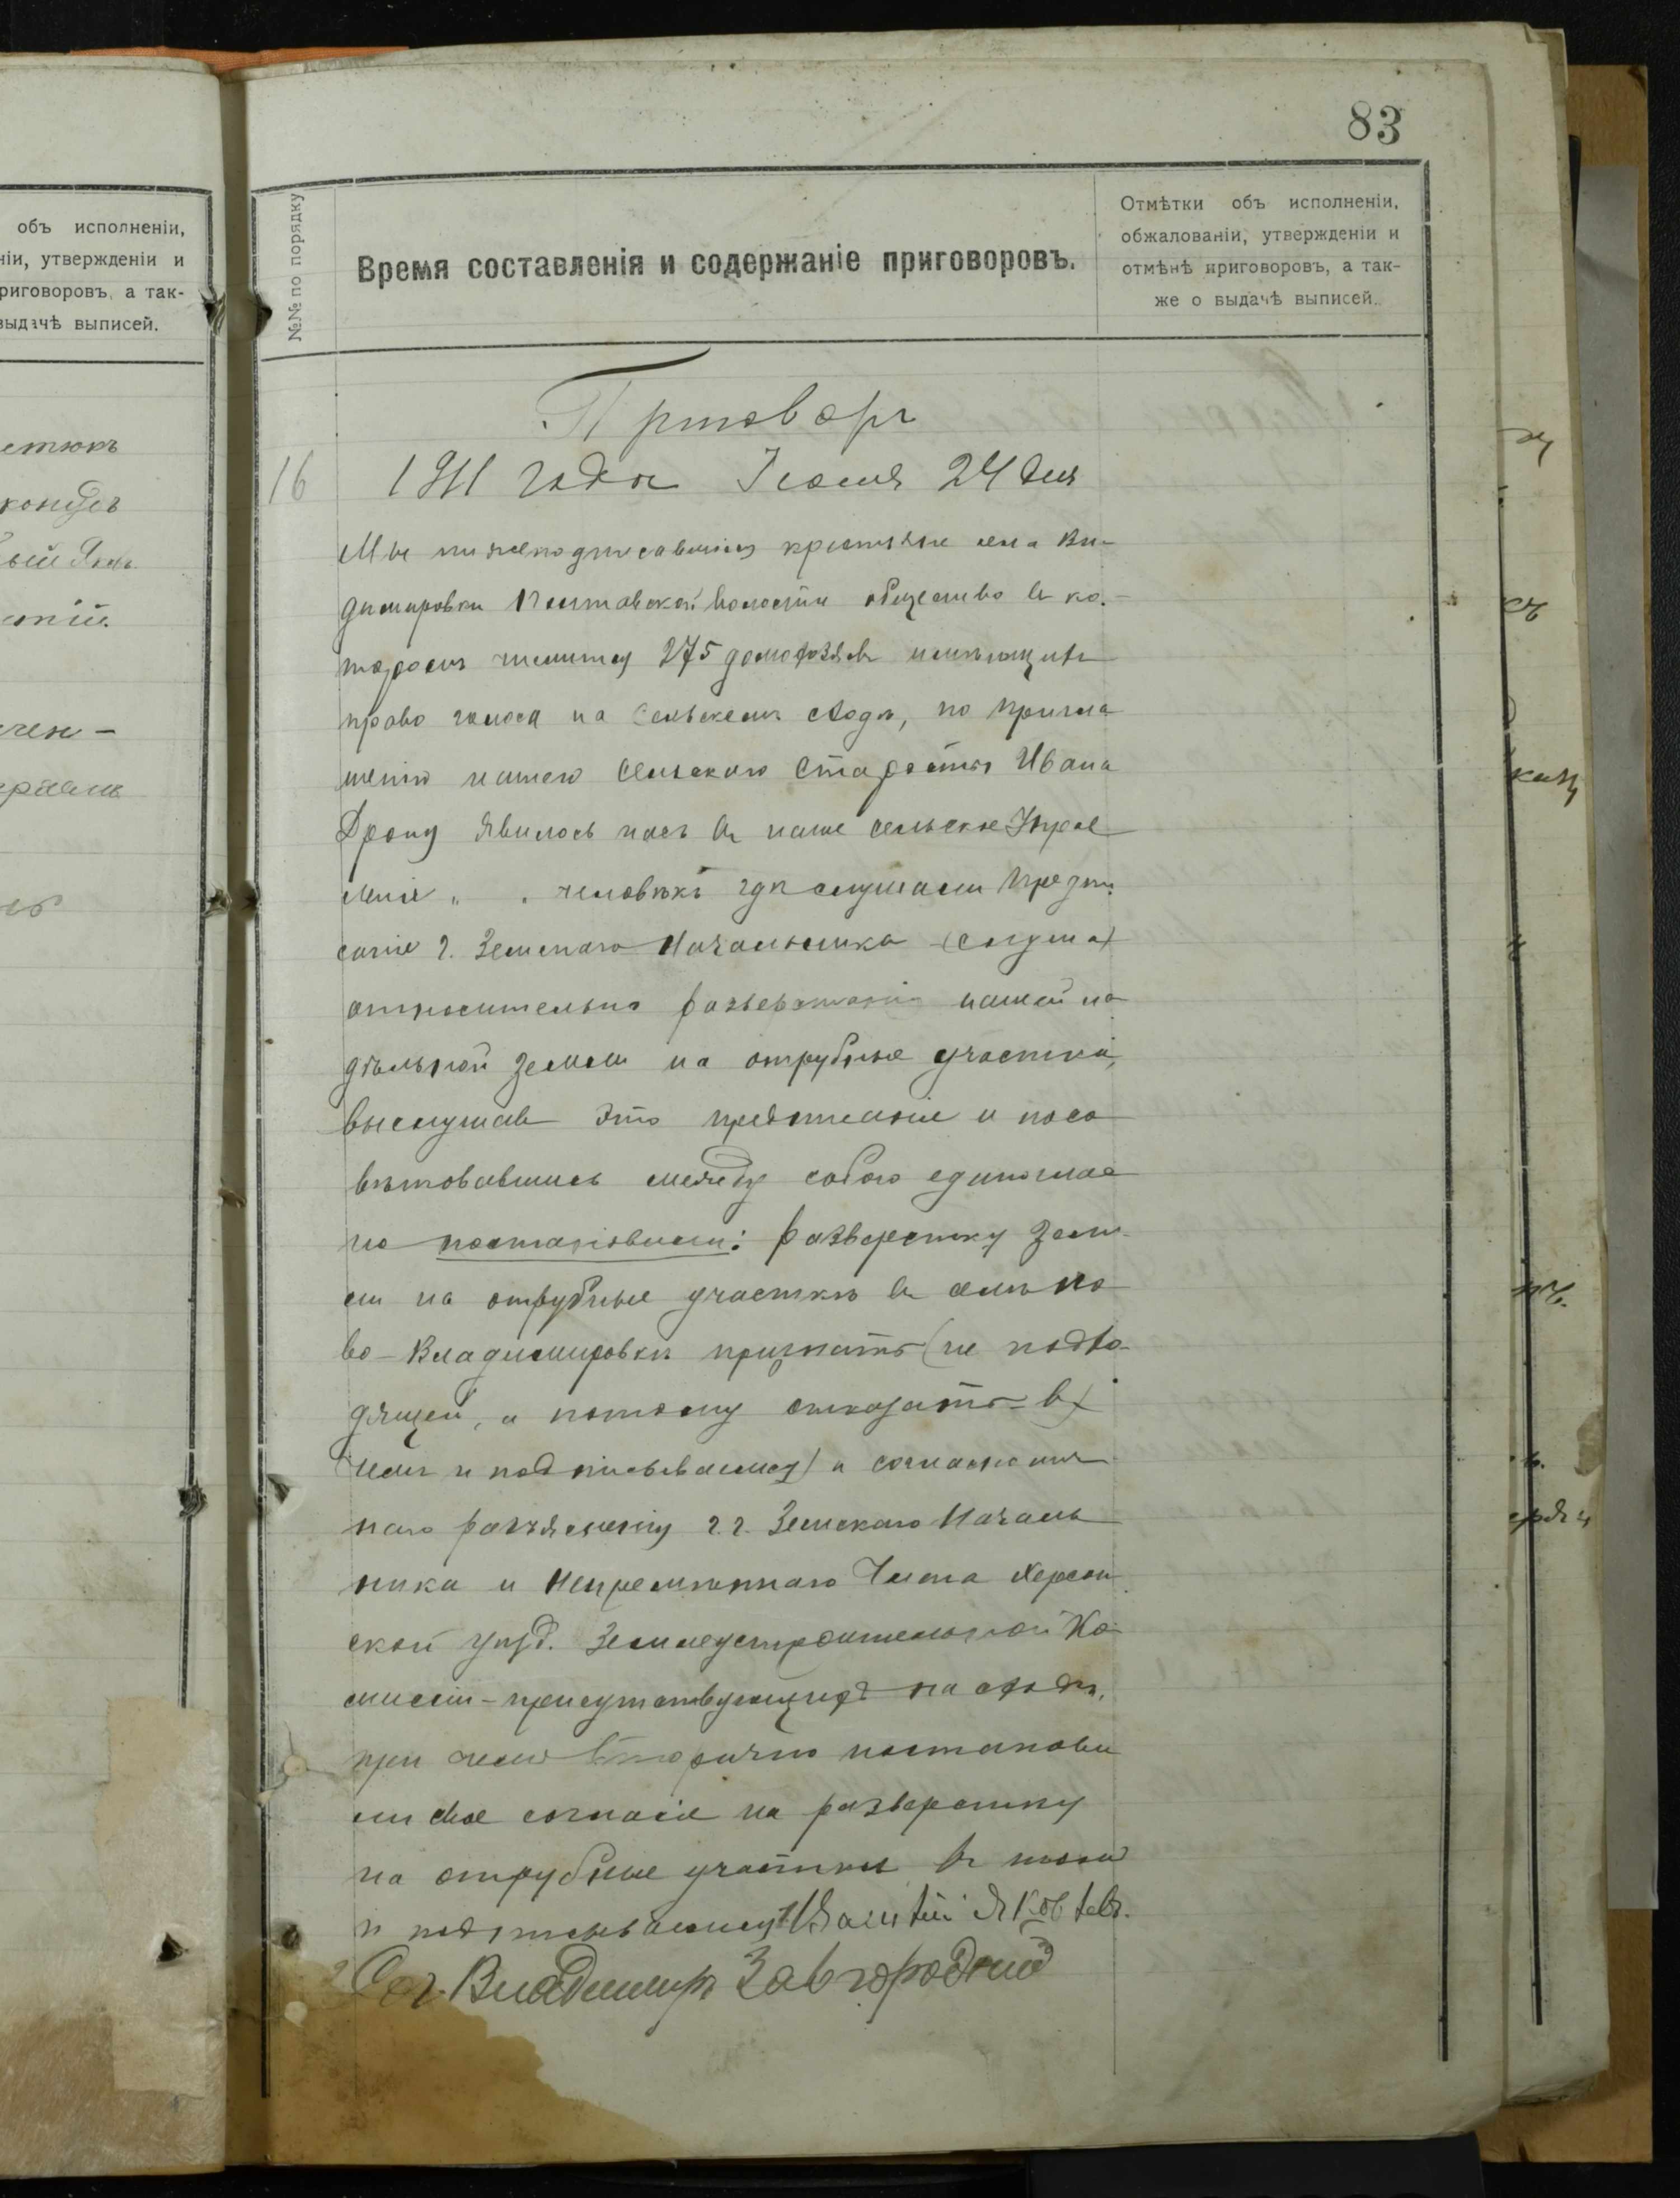 83
объ исполненіи,
ніи, утвержденіи и
риговоровъ, а так-
выдачѣ выписей.
№№ по порядку
Время составленія и содержаніе приговоровъ.
Отмѣтки объ исполненіи,
обжалованіи, утвержденіи и
отмѣнѣ приговоровъ, а так-
же о выдачѣ выписей.
Приговоръ
16
1911 года Іюня 24 дня
Мы нижеподписавшіеся крестьяне села Вла-
димировки волости общество въ ко-
торомъ числится 275 домохозяевъ имѣющихъ
право голоса на Сельскомъ сходѣ, по пригла
шенію нашего Сельскаго Старосты Ивана
явилось насъ въ наше сельское Управ
леніе „ „ человѣкъ гдѣ слушали Предпи
саніе г. Земскаго Начальника
относительно разверстанія нашей на
дѣльной земли на отрубные участки,
выслушавъ это предписаніе и посо
вѣтовавшись между собою единоглас
но постановили: разверстку зем
ли на отрубные участки въ селѣ Но
во-Владимировкѣ признать (не подхо-
дящей, а потому отказать въ
чемъ и подписываемся) и согласно
наго разъясненія г.г. Земскаго Началь
ника и Непремѣннаго Члена Херсон
ской уѣзд. Землеустроительной Ко-
миссіи - присутствующихъ на сходѣ,
при чемъ вторично постанови
ли свое согласіе на разверстку
на отрубные участки въ чемъ
и подписываемся
Владимиръ Завгородній